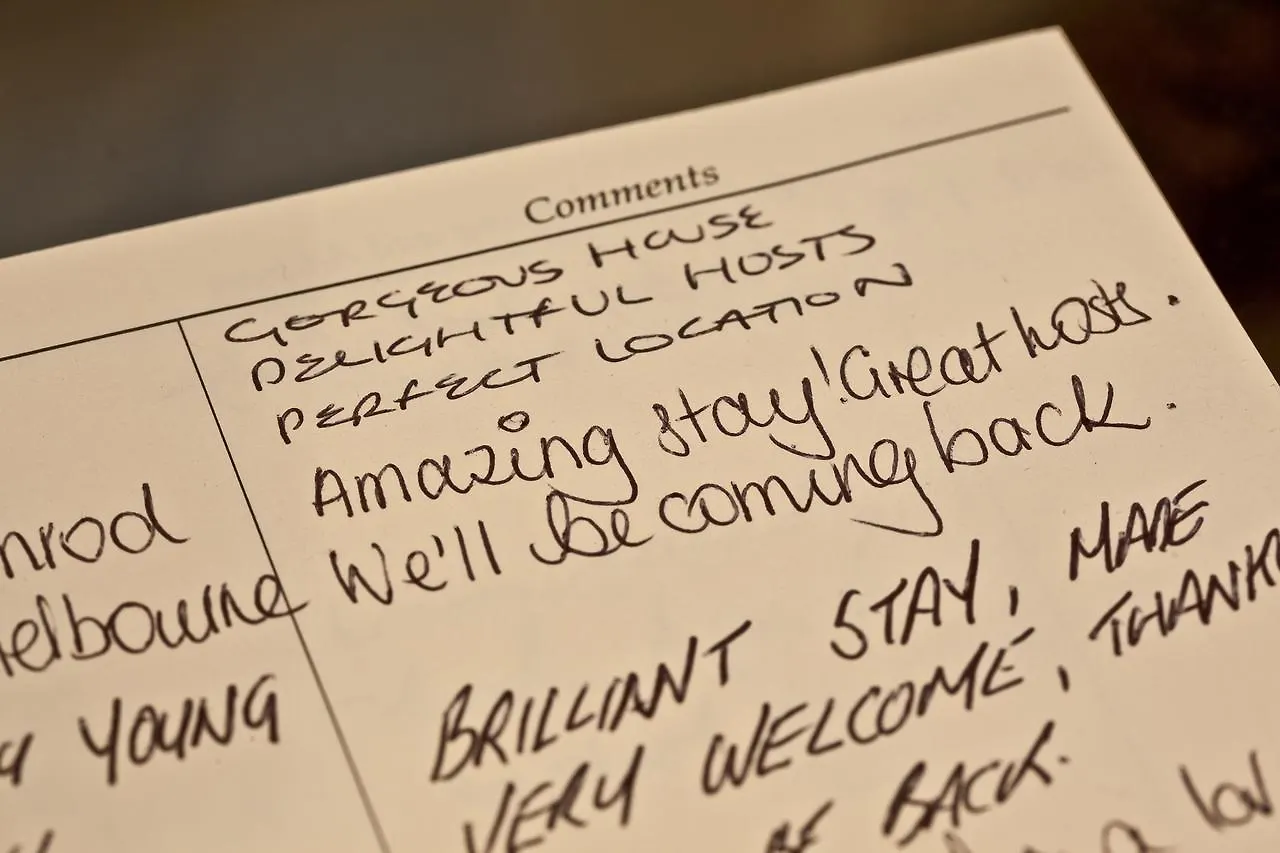 Comments
GORGEOUS HOUSE
DELIGHTFUL HOSTS
PERFECT LOCATION
Amazing stay! Great hosts.
We'll be coming back.
BRILLIANT STAY, MADE
VERY WELCOME,
BE BACK.
a
YOUNG